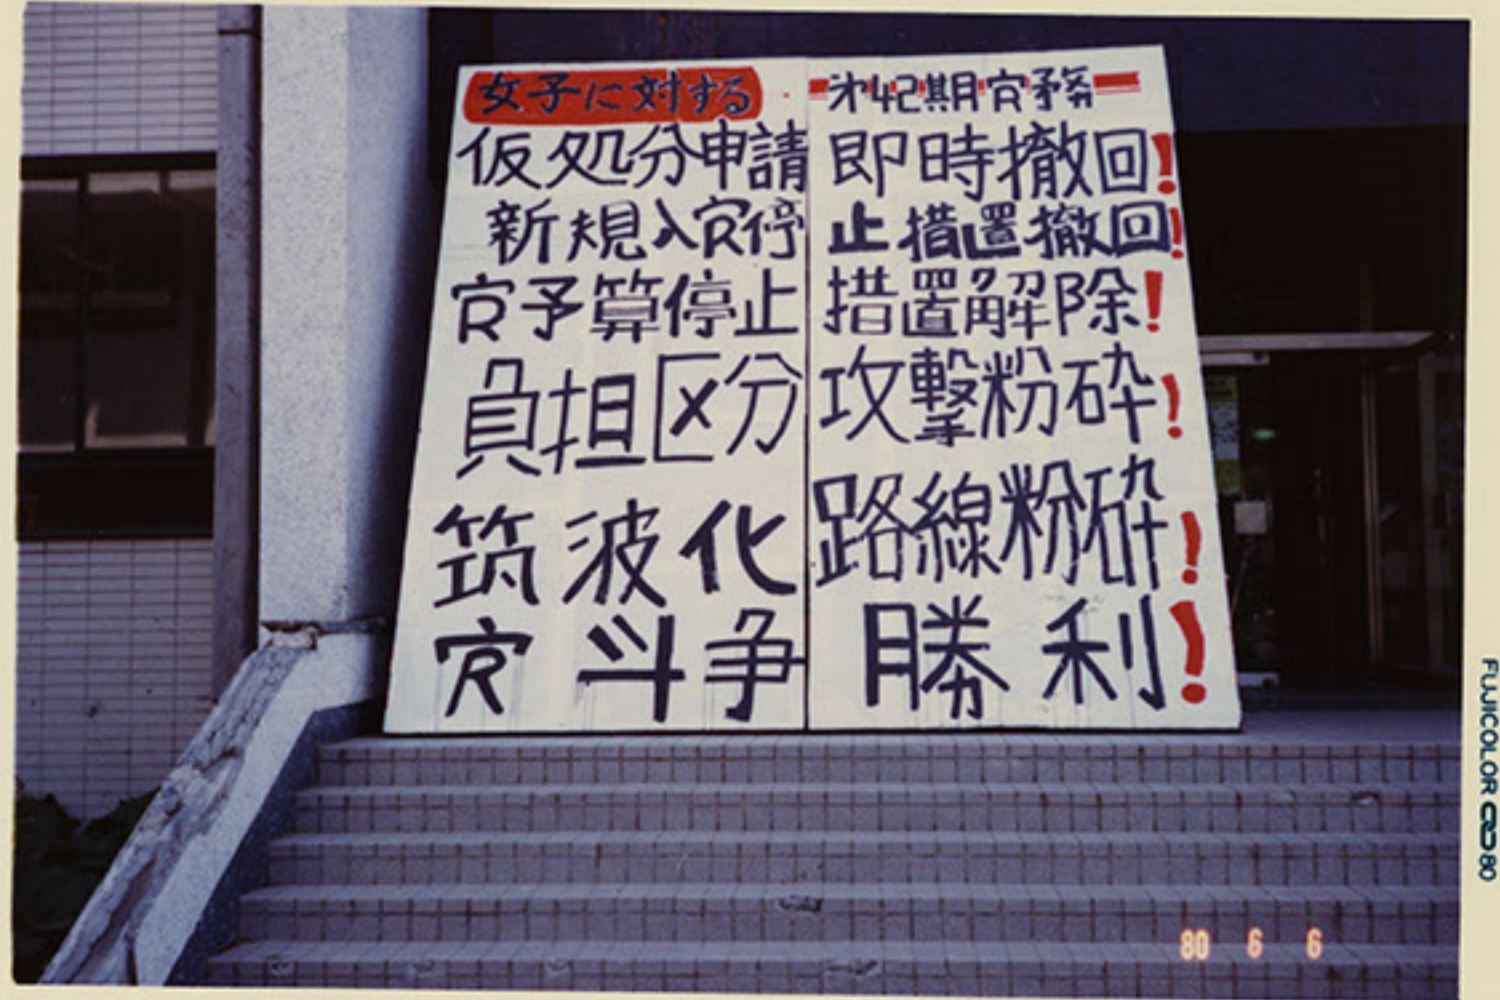 女子に対する 㐧42期寮務
仮処分申請即時撤回!
新規入寮停止措置撤回!
寮予算停止措置解除!
負担区分攻撃粉砕!
筑波化路線粉砕!
寮斗争勝利!
80 6 6
FUJICOLOR 80